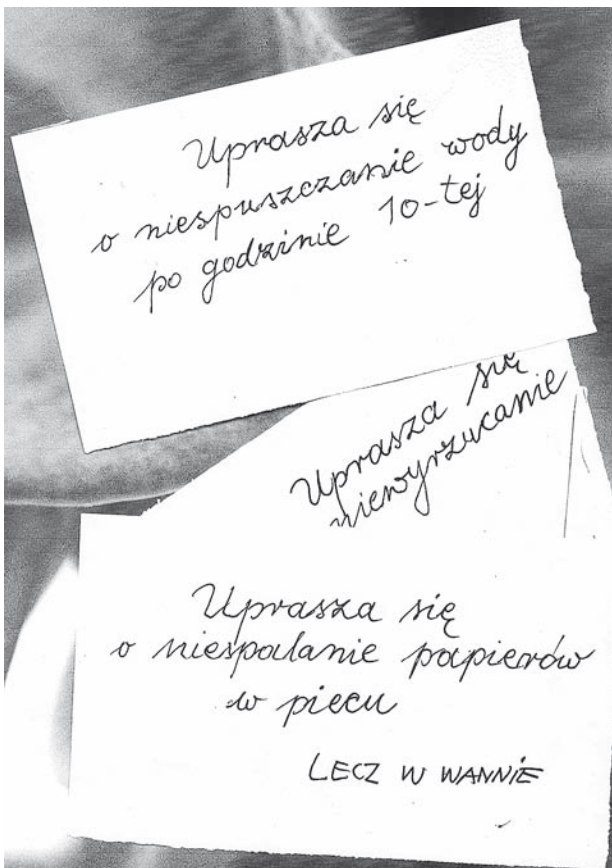 Uprasza się
o niespuszczanie wody
po godzinie 10-tej
Uprasza się
niewyrzucanie
Uprasza się
o niespalanie papierów
w piecu
LECZ W WANNIE